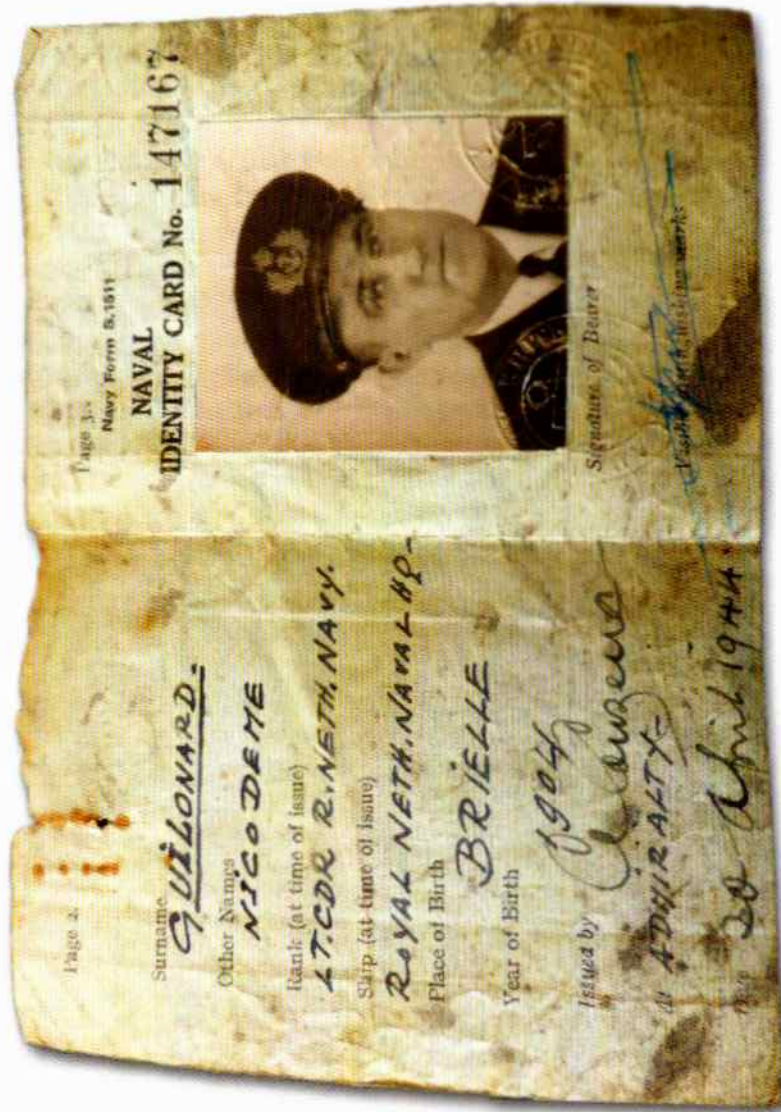 Page 2.
Surname
GUILONARD.
Other Names
NICODEME
Rank (at time of issue)
LT.CDR R.NETH.NAVY.
Ship (at time of issue)
ROYAL NETH.NAVAL HQ-
Place of Birth
BRIELLE
Year of Birth
1904
Issued by
At ADMIRALTY-
Date 20 April 1944.
Page 3.
Navy Form S.1511
NAVAL
IDENTITY CARD No. 147167
Signature of Bearer
Visible distinguishing marks